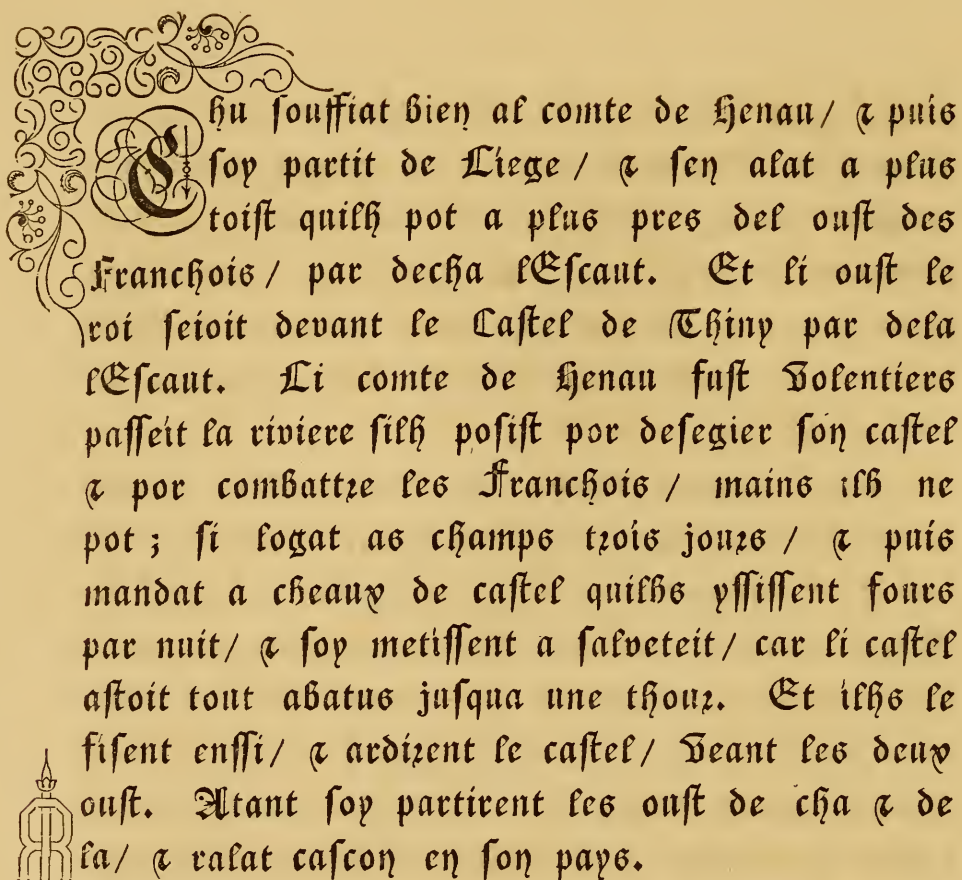 Chu souffiat bien al comte de Henau/ & puis
soy partit de Liege / & sen alat a plus
toist quilh pot a plus pres del oust des
Franchois / par decha lEscaut. Et li oust le
roi seioit devant le Castel de Thiny par dela
lEscaut. Li comte de Henau fust volentiers
passeit la riviere silh posist por desegier son castel
& por combattre les Franchois / mains ilh ne
pot ; si logat as champs trois jours / & puis
mandat a cheaux de castel quilhs yssissent fours
par nuit/ & soy metissent a salveteit/ car li castel
astoit tout abatus jusqua une thour. Et ilhs le
fisent enssi/ & ardirent le castel/ veant les deux
oust. Atant soy partirent les oust de cha & de
la/ & ralat cascon en son pays.